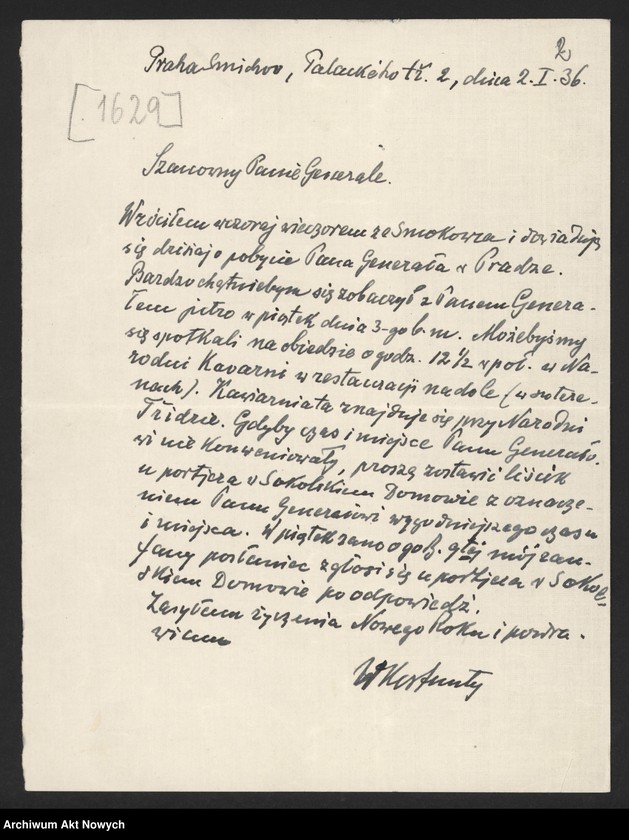 2
Praha Smichov, Palackého tř. 2, dnia 2.I.36.
[1629]
Szanowny Panie Generale.
Wróciłem wczoraj wieczorem ze Smokowca i dowiaduję
się dzisiaj o pobycie Pana Generała w Pradze.
Bardzo chętniebym się zobaczył z Panem Genera-
łem jutro w piątek dnia 3-go b.m. Możebyśmy
się spotkali na obiedzie o godz. 12 1/2 w poł. w Na-
rodni Kavarni w restauracji na dole (w sutere-
nach). Kawiarnia ta znajduje się przy Narodni
Třidzie. Gdyby czas i miejsce Panu Generało-
wi nie konweniowały, proszę zostawić liścik
u portjera w Sokolskiem Domowie z oznacze-
niem Panu Generałowi wygodniejszego czasu
i miejsca. W piątek rano o godz. 9tej mój zau-
fany posłaniec zgłosi się u portjera w Sokol-
skiem Domowie po odpowiedź.
Zasyłam życzenia Nowego Roku i pozdro-
wienia
WKorfanty
Archiwum Akt Nowych